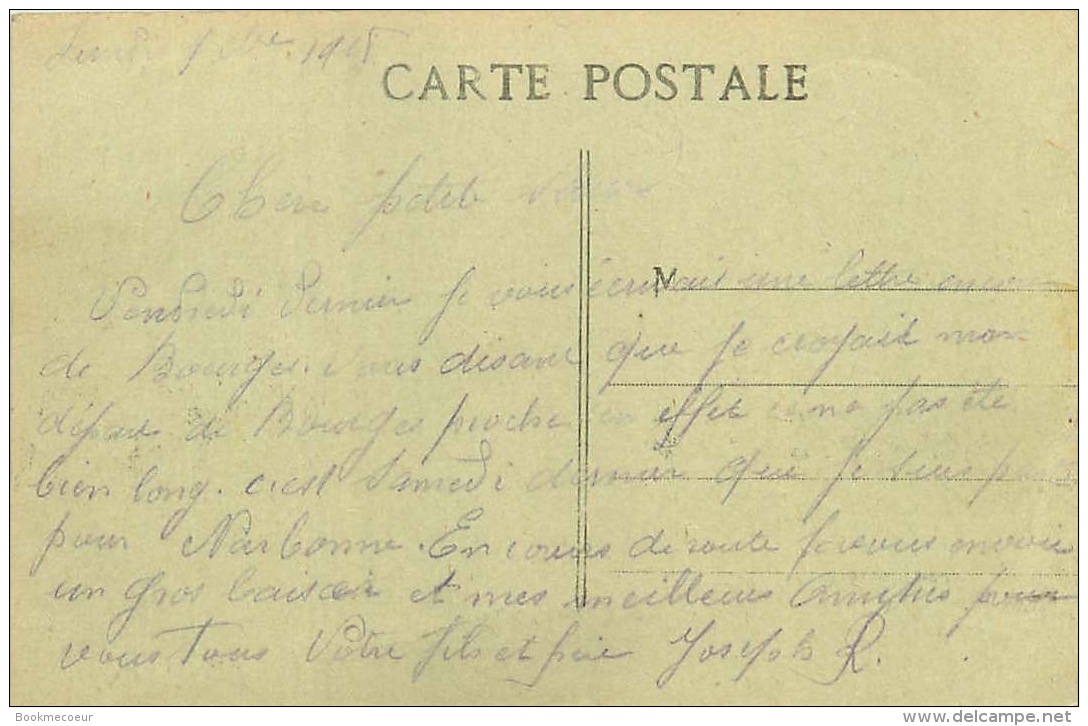 1915
CARTE POSTALE
Chere petite
Vendredi dernier Je vous écrivais une lettre encore
M
de Bourges. vous disant que Je croyait mon
départ de Bourges proche en effet ce na pas été
bien long. c'est Samedi dernier que Je suis
pour Narbonne. En cours de route Je vous envoie
un gros baiser et mes meilleures Amitiés pour
vous Tous Votre fils et frère Joseph R.
Bookmecoeur
www.delcampe.net